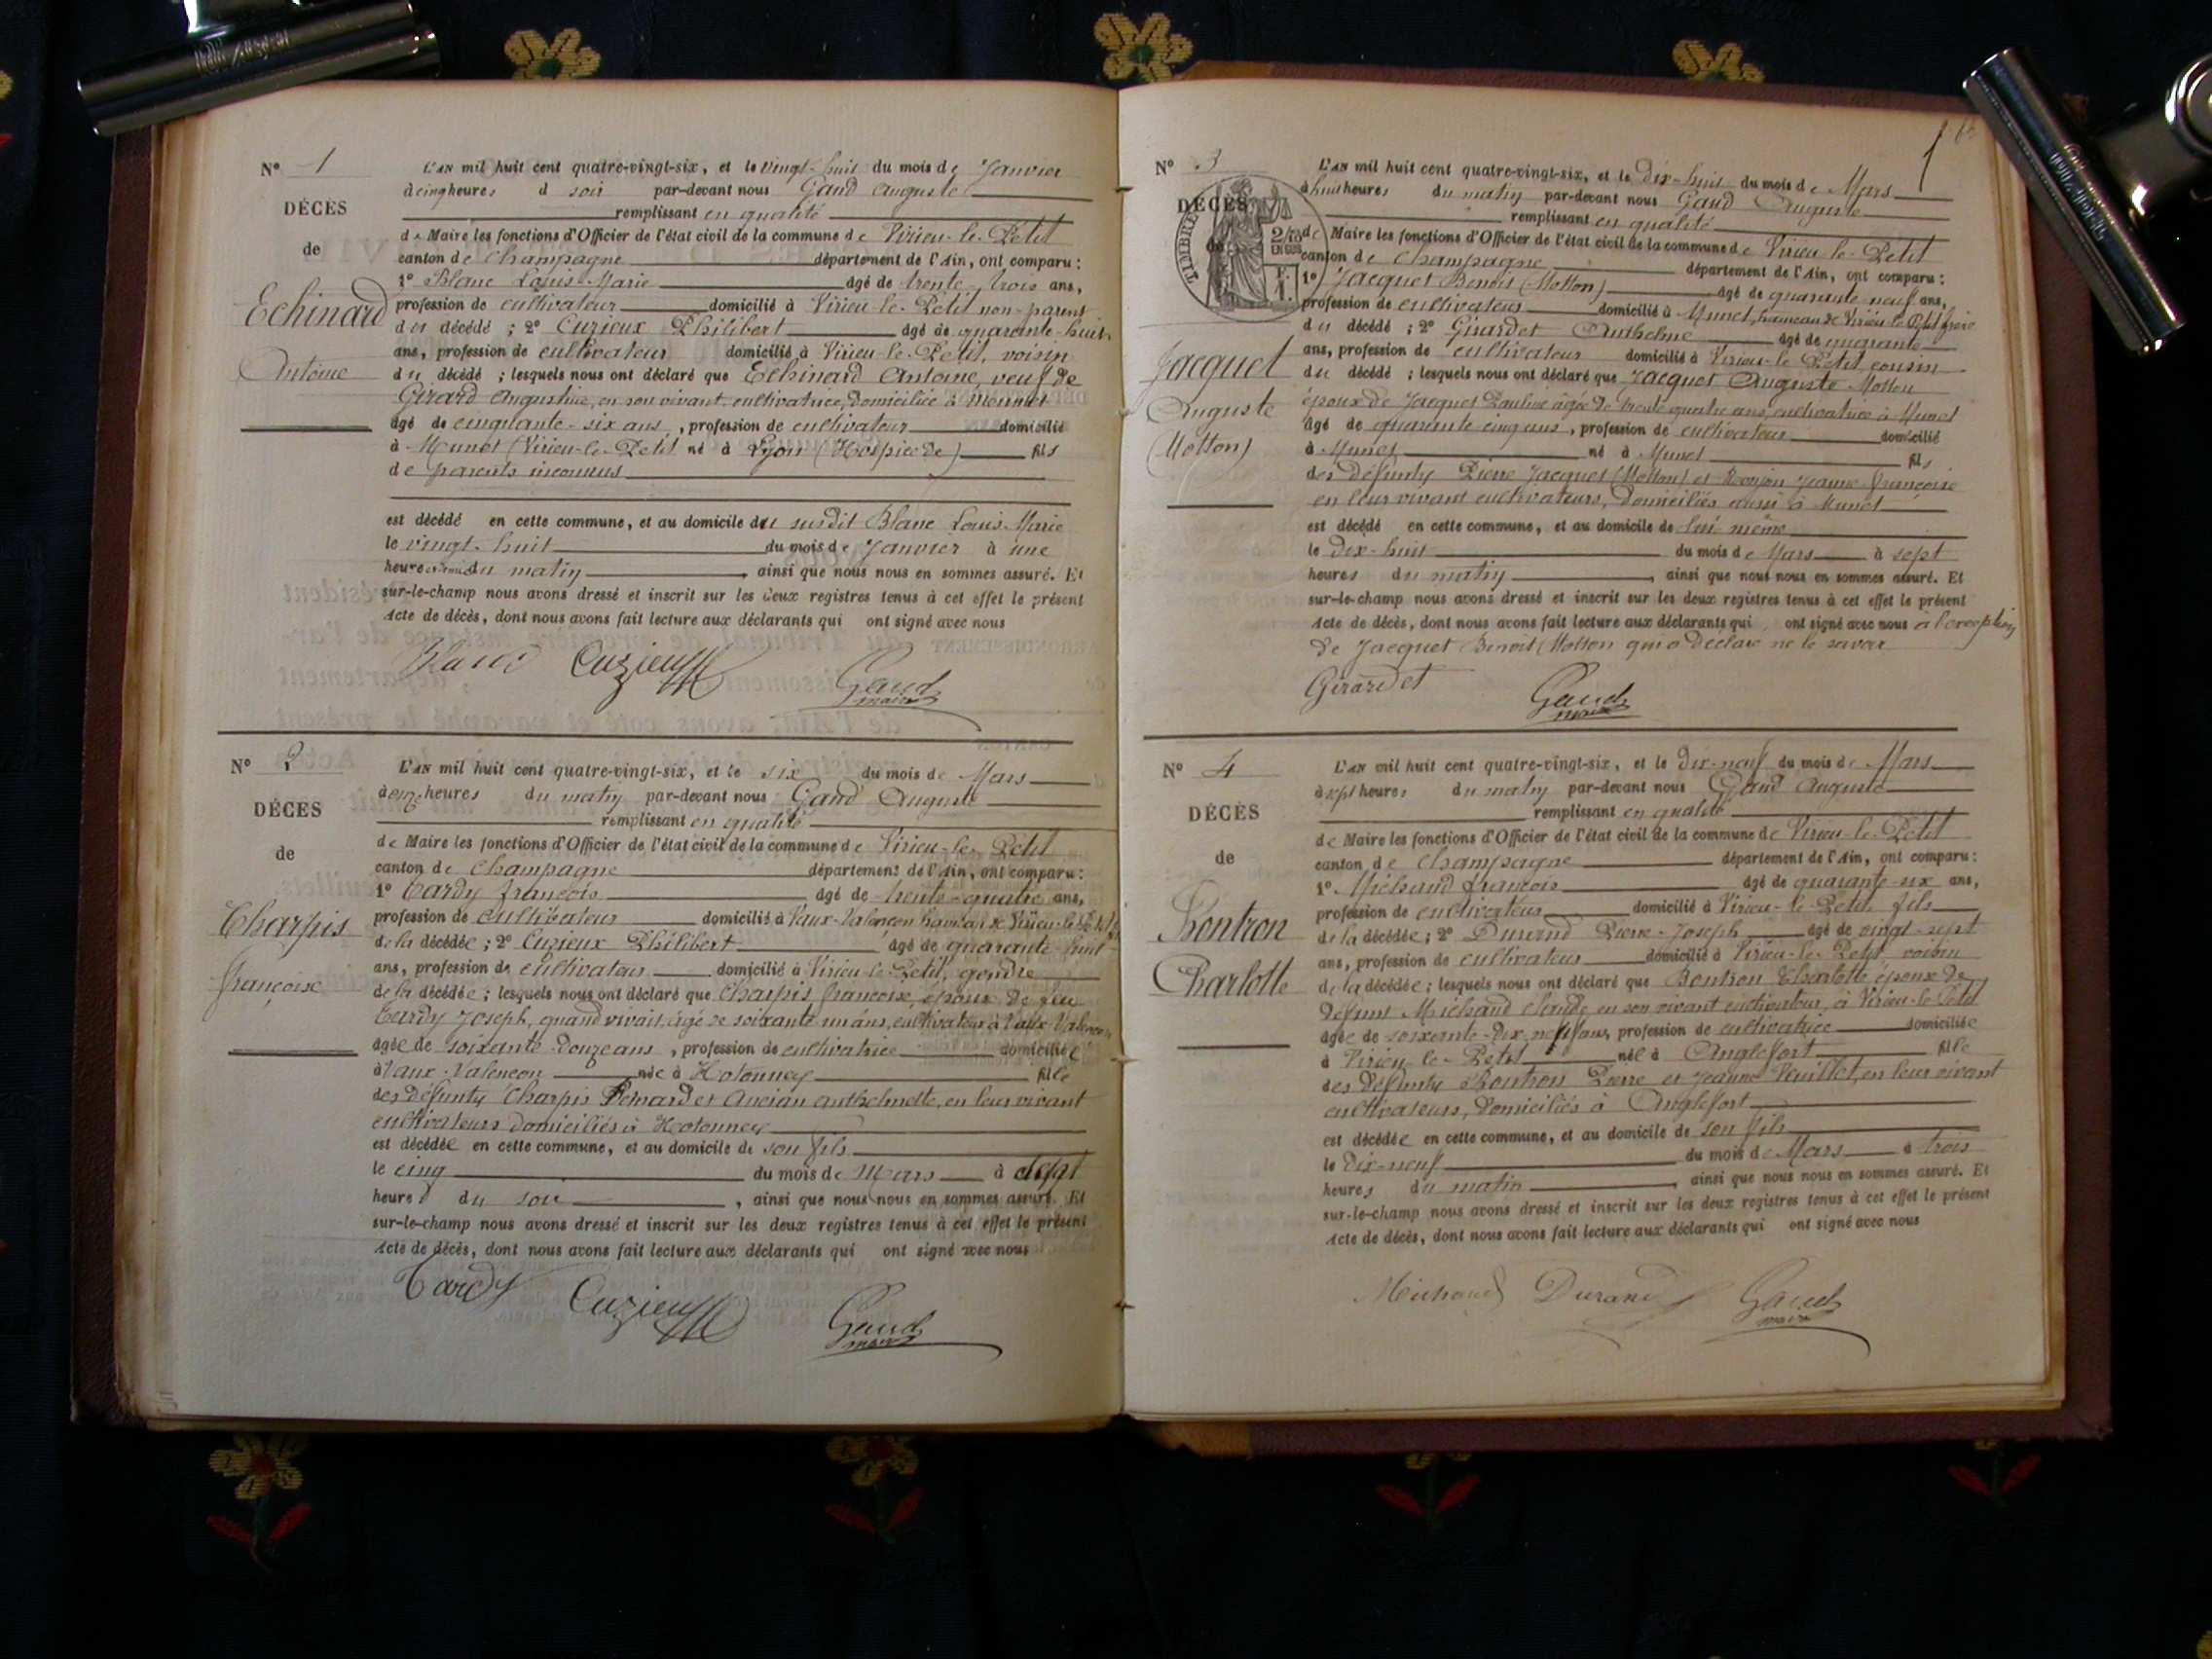 N° 1
DÉCÈS
de
Echinard
Antoine
L'AN mil huit cent quatre-vingt-six, et le vingt-huit du mois de Janvier
à cinq heures d soir par-devant nous Gaud Auguste
remplissant en qualité
de Maire les fonctions d'Officier de l'état civil de la commune de Virieu-le-Petit
canton de Champagne département de l'Ain, ont comparu :
1° Blanc Louis-Marie âgé de trente-trois ans,
profession de cultivateur domicilié à Virieu-le-Petit non-parent
du décédé ; 2° Cuzieux Philibert âgé de quarante-huit
ans, profession de cultivateur domicilié à Virieu-le-Petit, voisin
du décédé ; lesquels nous ont déclaré que Echinard Antoine, veuf de
Girard Augustine, en son vivant cultivatrice, domiciliée à
âgé de cinquante-six ans, profession de cultivateur domicilié
à Munet (Virieu-le-Petit né à Lyon (Hospice de) fils
de parents inconnus
est décédé en cette commune, et au domicile du susdit Blanc Louis-Marie
le vingt-huit du mois de Janvier à une
heure du matin, ainsi que nous nous en sommes assuré. Et
sur-le-champ nous avons dressé et inscrit sur les deux registres tenus à cet effet le présent
Acte de décès, dont nous avons fait lecture aux déclarants qui ont signé avec nous
Blanc Cuzieux Gaud
maire
N° 2
DÉCÈS
de
Charpis
françoise
L'AN mil huit cent quatre-vingt-six, et le six du mois de Mars
à onze heures du matin par-devant nous Gaud Auguste
remplissant en qualité
de Maire les fonctions d'Officier de l'état civil de la commune de Virieu-le-Petit
canton de Champagne département de l'Ain, ont comparu :
1° Tardy françois âgé de trente-quatre ans,
profession de cultivateur domicilié à Vaux-Valencon hameau de Virieu-le-Petit
de la décédée ; 2° Cuzieux Philibert âgé de quarante-huit
ans, profession de cultivateur domicilié à Virieu-le-Petit, gendre
de la décédée ; lesquels nous ont déclaré que Charpis françoise, épouse de feu
Tardy Joseph, quand vivait, âgé de soixante un ans, cultivateur à Vaux-Valencon
âgée de soixante-douze ans, profession de cultivatrice domiciliée
à Vaux-Valencon née à Hotonnes fille
des défunts Charpis Bernard et Ancian anthelmette, en leur vivant
cultivateurs domiciliés à Hotonnes
est décédée en cette commune, et au domicile de son fils
le cinq du mois de Mars à sept
heures du soir, ainsi que nous nous en sommes assuré. Et
sur-le-champ nous avons dressé et inscrit sur les deux registres tenus à cet effet le présent
Acte de décès, dont nous avons fait lecture aux déclarants qui ont signé avec nous
Tardy Cuzieux Gaud
maire
N° 3
DÉCÈS
de
TIMBRE
Jacquet
Auguste
(Motton)
L'AN mil huit cent quatre-vingt-six, et le dix-huit du mois de Mars
à huit heures du matin par-devant nous Gaud Auguste
remplissant en qualité
de Maire les fonctions d'Officier de l'état civil de la commune de Virieu-le-Petit
canton de Champagne département de l'Ain, ont comparu :
1° Jacquet Benoit (Motton) âgé de quarante-neuf ans,
profession de cultivateur domicilié à Munet, hameau de Virieu-le-Petit frère
du décédé ; 2° Girardet Anthelme âgé de quarante
ans, profession de cultivateur domicilié à Virieu-le-Petit cousin
du décédé ; lesquels nous ont déclaré que Jacquet Auguste Motton
époux de Jacquet Pauline âgée de trente quatre ans, cultivatrice à Munet
âgé de quarante cinq ans, profession de cultivateur domicilié
à Munet né à Munet fils
des défunts Pierre Jacquet (Motton) et Jeanne françoise
en leur vivant cultivateurs, domiciliés aussi à Munet
est décédé en cette commune, et au domicile de lui même
le dix-huit du mois de Mars à sept
heures du matin, ainsi que nous nous en sommes assuré. Et
sur-le-champ nous avons dressé et inscrit sur les deux registres tenus à cet effet le présent
Acte de décès, dont nous avons fait lecture aux déclarants qui ont signé avec nous à l'exception
de Jacquet Benoit Motton qui a déclaré ne le savoir
Girardet Gaud
maire
N° 4
DÉCÈS
de
Bontron
Charlotte
L'AN mil huit cent quatre-vingt-six, et le dix-neuf du mois de Mars
à sept heures du matin par-devant nous Gaud Auguste
remplissant en qualité
de Maire les fonctions d'Officier de l'état civil de la commune de Virieu-le-Petit
canton de Champagne département de l'Ain, ont comparu :
1° Michaud françois âgé de quarante-six ans,
profession de cultivateur domicilié à Virieu-le-Petit, fils
de la décédée ; 2° Durand Pierre-Joseph âgé de vingt-sept
ans, profession de cultivateur domicilié à Virieu-le-Petit, voisin
de la décédée ; lesquels nous ont déclaré que Bontron Charlotte épouse de
défunt Michaud claude en son vivant cultivateur, à Virieu-le-Petit
âgée de soixante-dix neuf ans, profession de cultivatrice domiciliée
à Virieu-le-Petit née à Anglefort fille
des défunts Bontron Pierre et Jeanne Vuillet, en leur vivant
cultivateurs, domiciliés à Anglefort
est décédée en cette commune, et au domicile de son fils
le dix-neuf du mois de Mars à trois
heures du matin, ainsi que nous nous en sommes assuré. Et
sur-le-champ nous avons dressé et inscrit sur les deux registres tenus à cet effet le présent
Acte de décès, dont nous avons fait lecture aux déclarants qui ont signé avec nous
Michaud Durand Gaud
maire